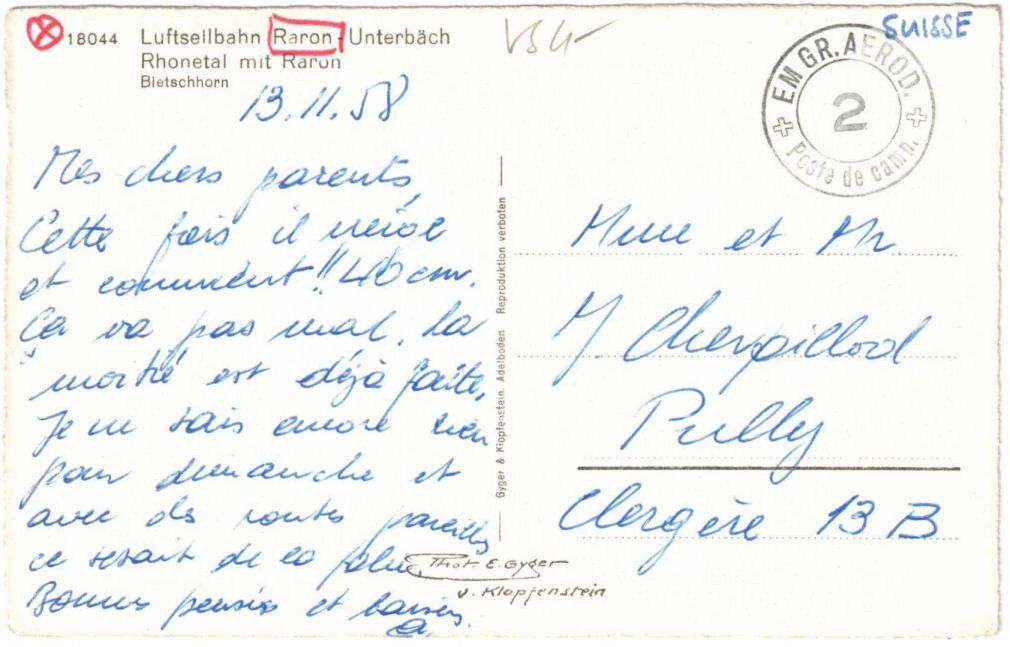 18044 Luftseilbahn Raron-Unterbäch
Rhonetal mit Raron
Bietschhorn
13.11.58
Mes chers parents,
Cette fois il neige
et comment!! 40 cm.
Ça va pas mal, la
moitié est déjà faite,
Je ne sais encore rien
pour dimanche et
avec des routes pareilles
ce serait de la folie.
Bonnes pensées et baisers.
Gyger & Klopfenstein, Adelboden Reproduktion verboten
Phot. E. Gyger
u. Klopfenstein
SUISSE
EM GR. AEROD.
2
Poste de camp.
Mme et Mr.
J. Cherpillod
Pully
Clergère 13 B